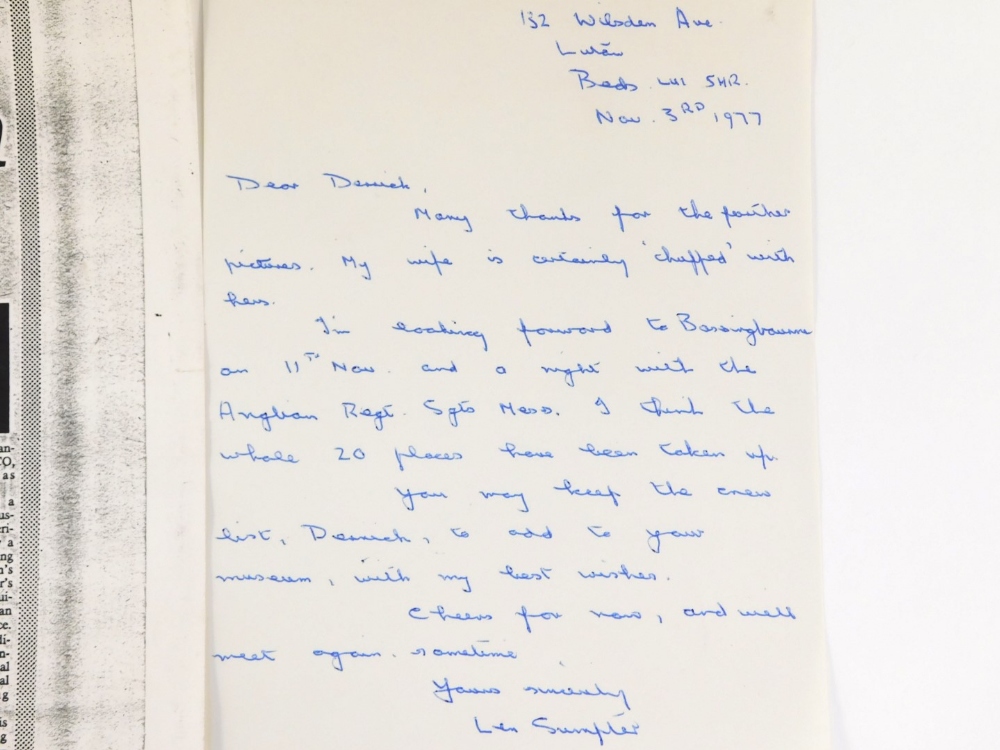 132 Wilsden Ave.
Luton
Beds. LU1 5HR.
Nov. 3RD 1977
Dear Derrick,
Many thanks for the further
pictures. My wife is certainly 'chuffed' with
hers.
I'm looking forward to Bassingbourne
on 11TH Nov. and a night with the
Anglian Regt. Sgts Mess. I think the
whole 20 places have been taken up.
You may keep the crew
list, Derrick, to add to your
museum, with my best wishes.
Cheers for now, and well
meet again. sometime
Yours sincerely
Len Sumpter
an-
CO,
as
a
us-
eri-
y a
ng
n's
r's
ui-
an
ce.
li-
n-
al
al
g
is
g